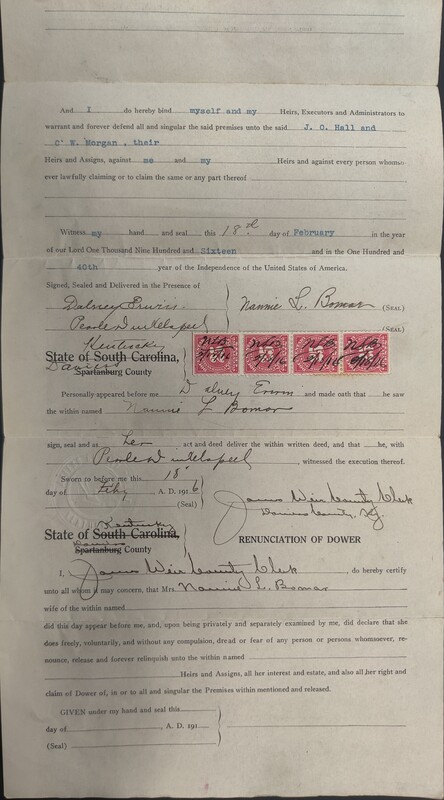 And I do hereby bind myself and my Heirs, Executors and Administrators to
warrant and forever defend all and singular the said premises unto the said J. O. Hall and
C' E. Morgan, their
Heirs and Assigns, against me and my Heirs and against every person whomso-
ever lawfully claiming or to claim the same or any part thereof
Witness my hand and seal this 18th day of February in the year
of our Lord One Thousand Nine Hundred and Sixteen and in the One Hundred and
40th year of the Independence of the United States of America.
Signed, Sealed and Delivered in the Presence of
Nannie L. Bomar (SEAL)
(SEAL)
Kentucky
State of South Carolina,
Daviess
Spartanburg County
Personally appeared before me and made oath that he saw
the within named Nannie L Bomar
sign, seal and as her act and deed deliver the within written deed, and that he, with
, witnessed the execution thereof.
Sworn to before me this 18"
day of Feby A. D. 1916
(Seal)
James Weir County Clerk
Daviess County, Ky.
Kentucky
State of South Carolina,
Daviess
Spartanburg County
RENUNCIATION OF DOWER
I, James Weir County Clerk, do hereby certify
unto all whom it may concern, that Mrs. Nannie L. Bomar
wife of the within named
did this day appear before me, and, upon being privately and separately examined by me, did declare that she
does freely, voluntarily, and without any compulsion, dread or fear of any person or persons whomsoever, re-
nounce, release and forever relinquish unto the within named
Heirs and Assigns, all her interest and estate, and also all her right and
claim of Dower of, in or to all and singular the Premises within mentioned and released.
GIVEN under my hand and seal this
day of A. D. 191
(Seal)